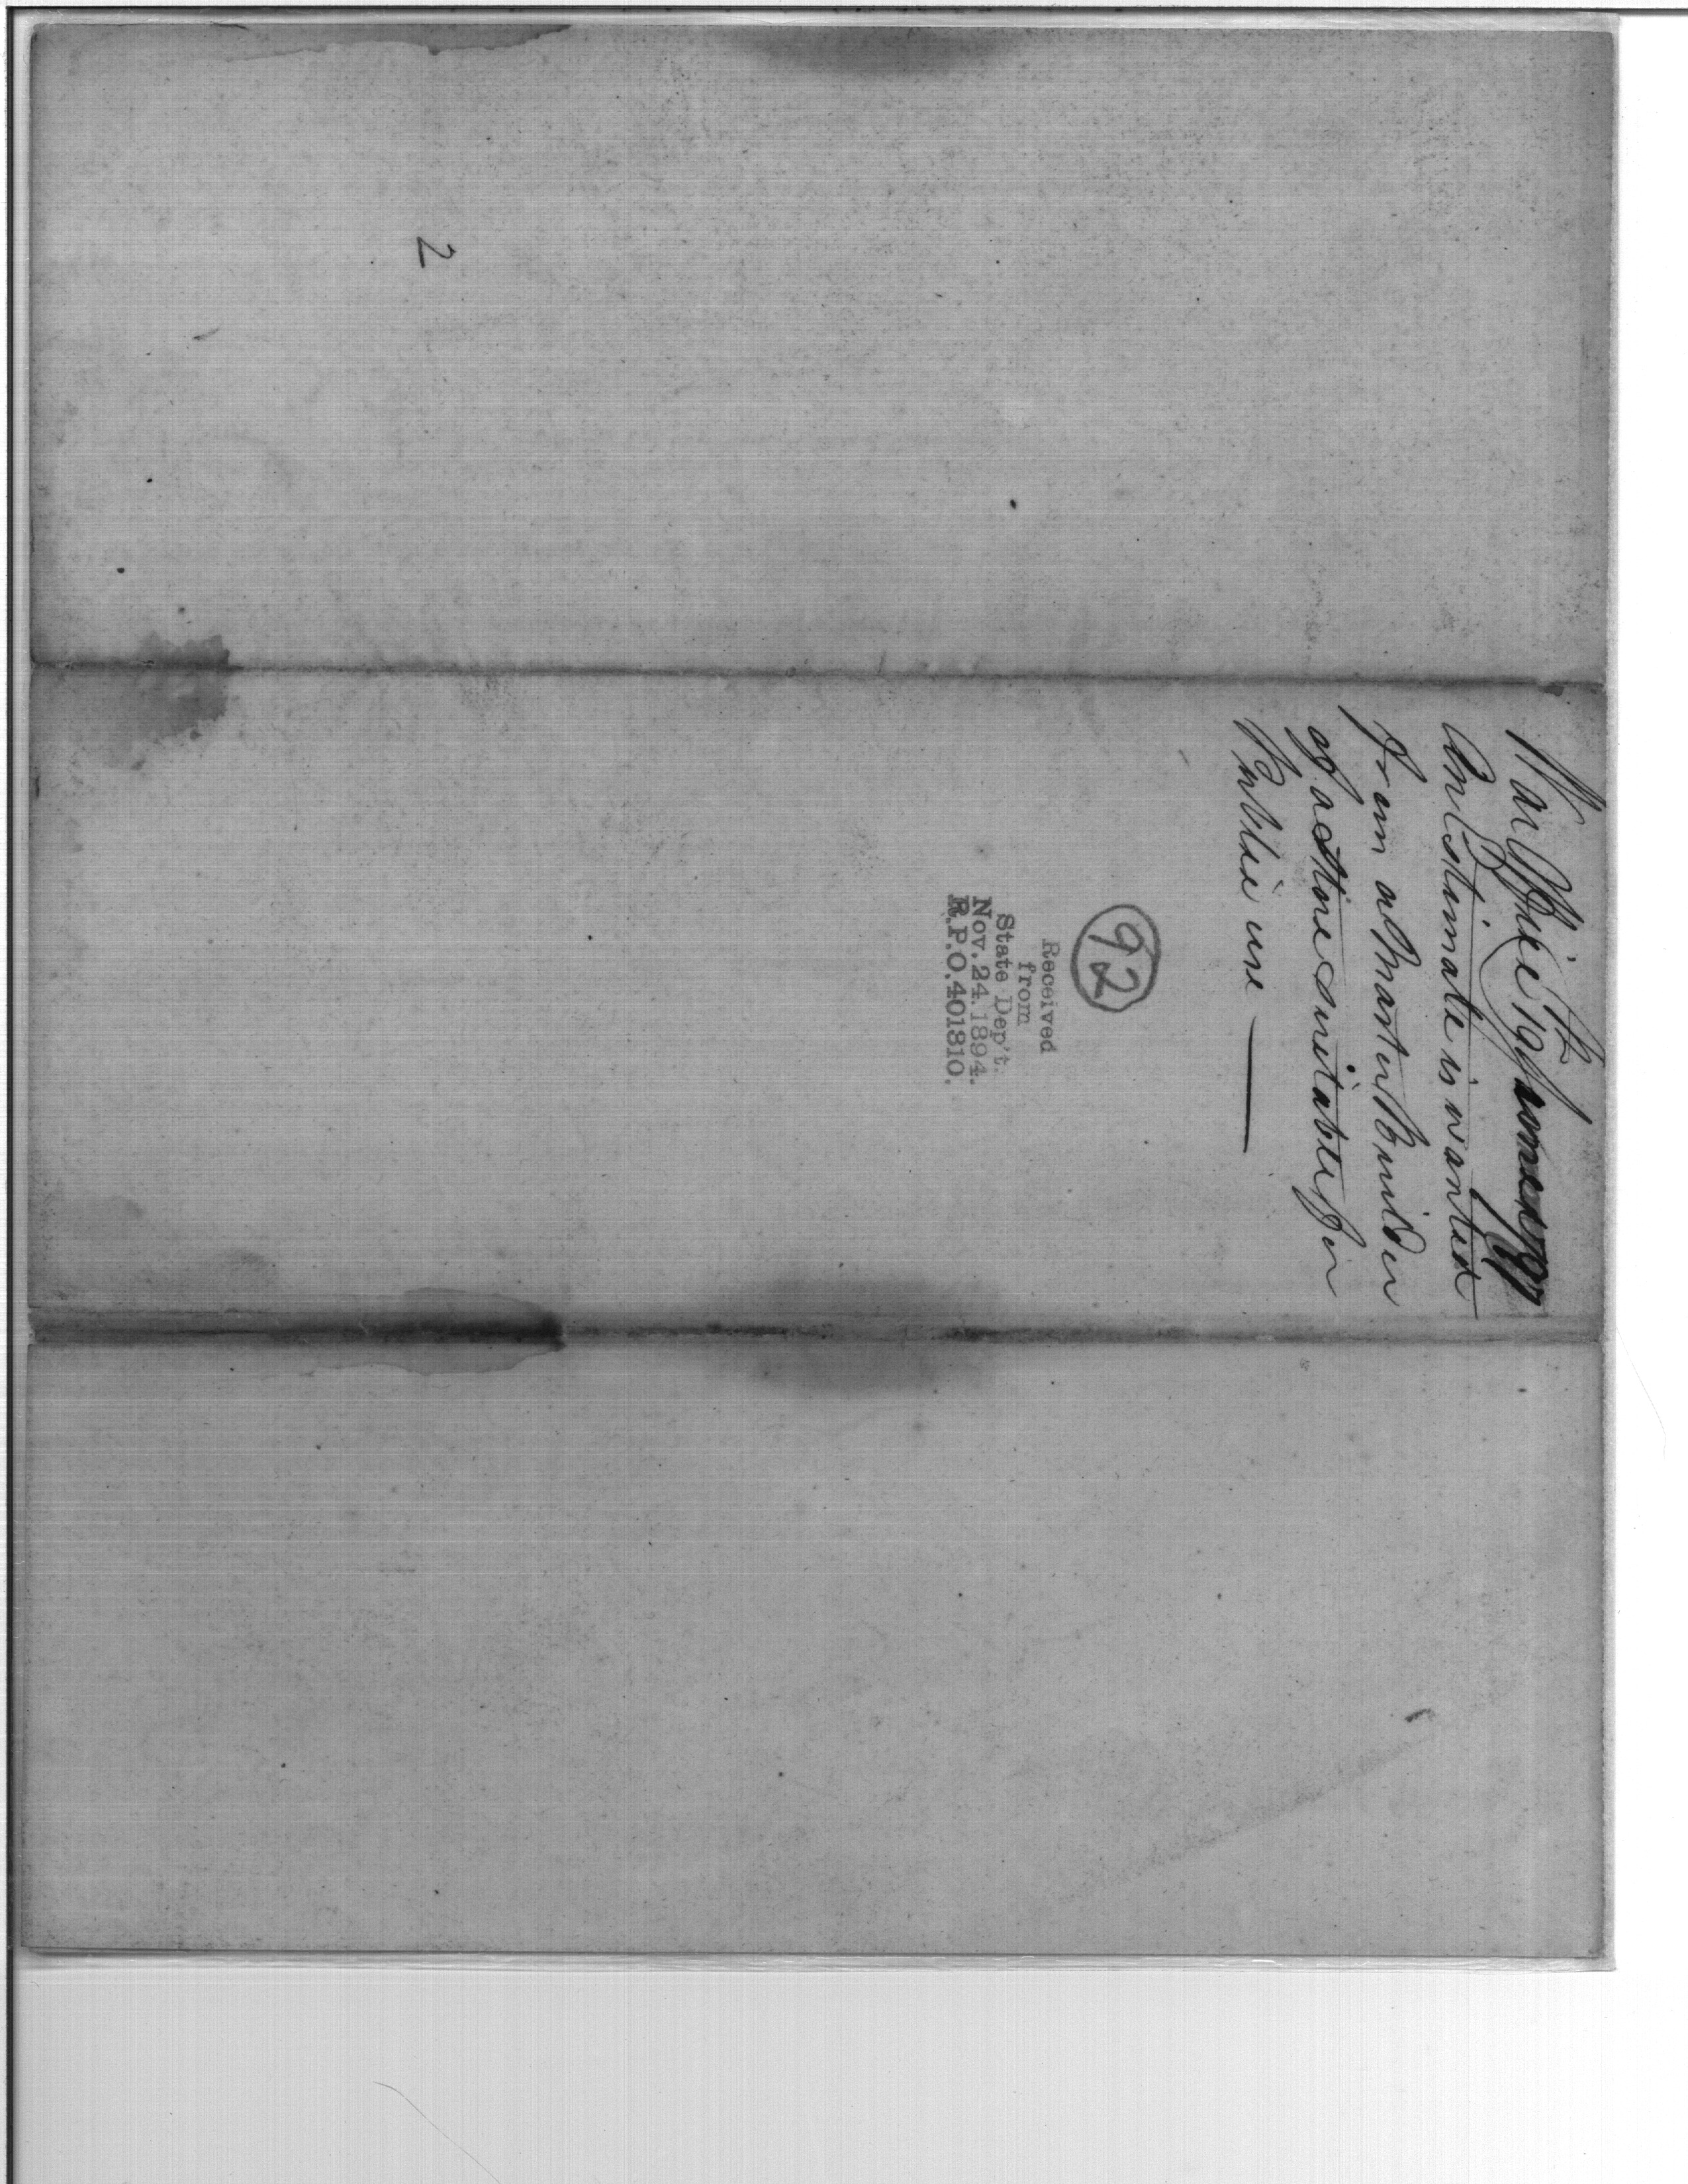 War Office 19th
An Estimate is wanted
from a Master Builder
of a Store suitable for
Public use
92
Received
from
State Dep't.
Nov. 24. 1894.
R.P.O. 401810.
2